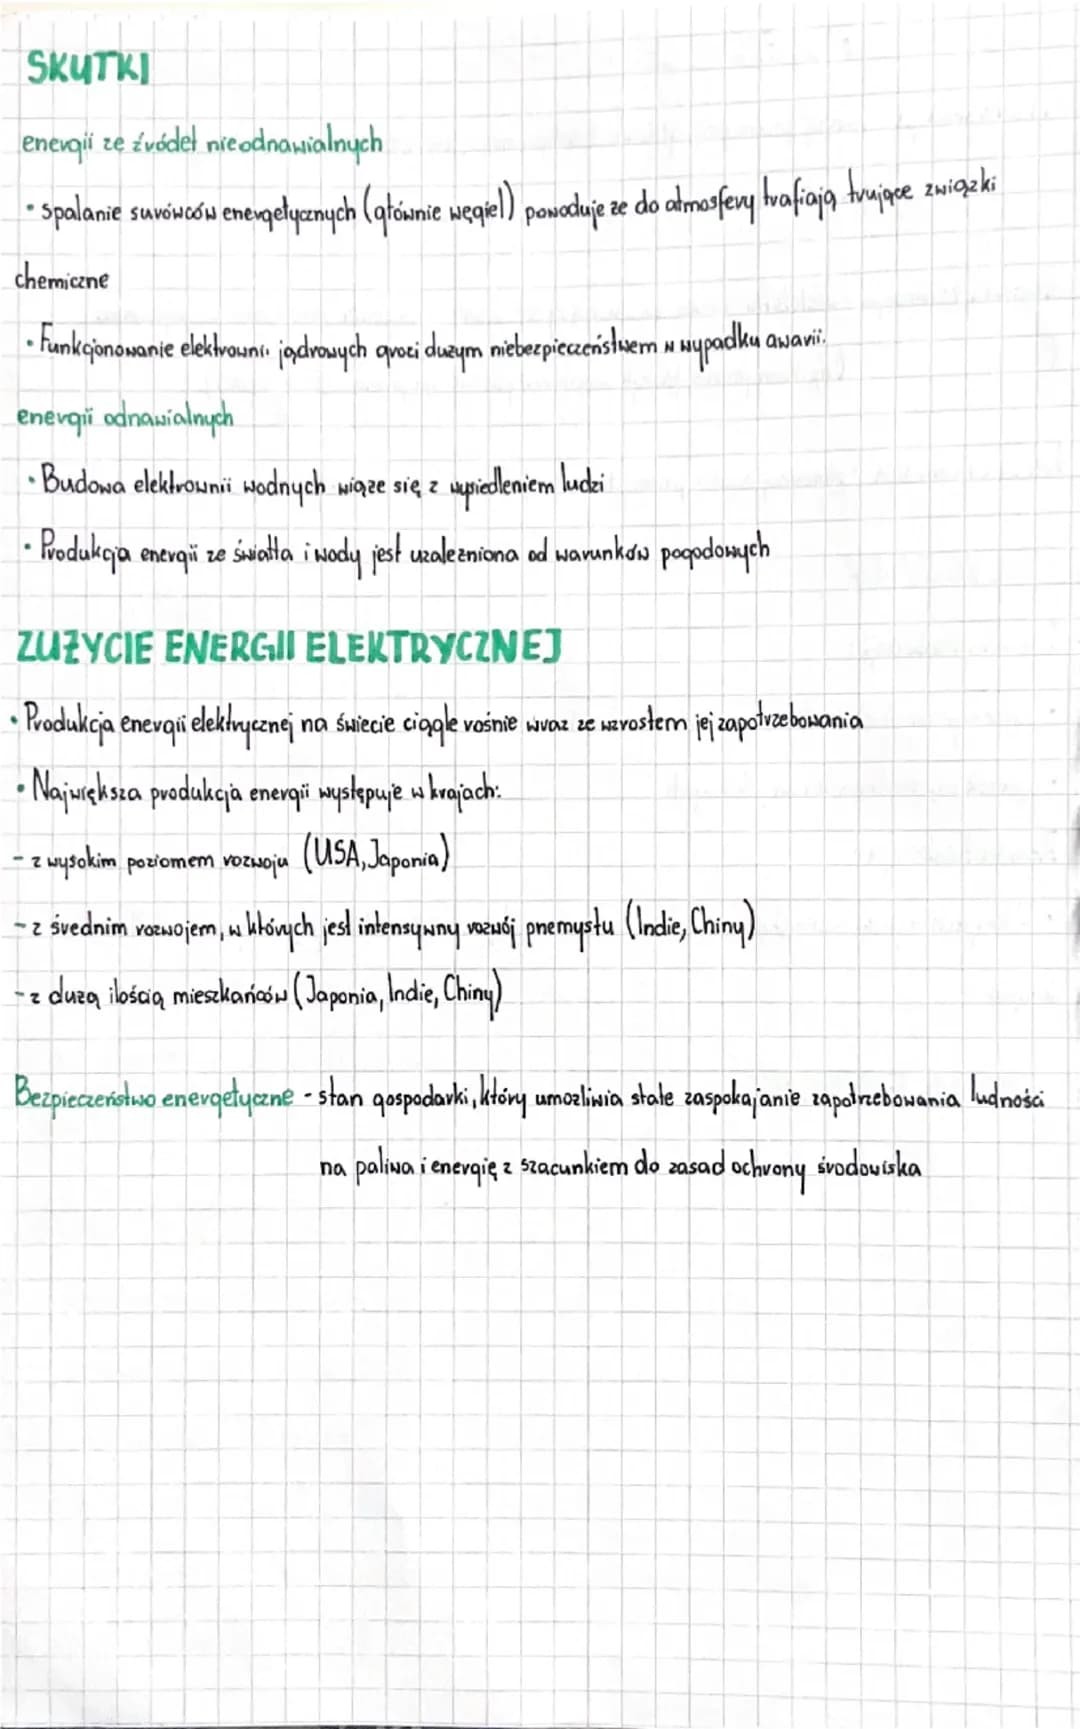 SKUTKI
energii ze źródeł nieodnawialnych
• spalanie surówców energetycznych (głównie węgiel) powoduje ze do atmosfery trafiają trujące związki
chemiczne
• Funkcjonowanie elektrowni jądrowych grozi dużym niebezpieczeństwem w wypadku awarii.
energii odnawialnych
• Budowa elektrownii wodnych wiąze się z wysiedleniem ludzi
• Produkcja energii ze światła i wody jest uzalezniona od warunków pogodowych
ZUŻYCIE ENERGII ELEKTRYCZNEJ
• Produkcja energii elektrycznej na świecie ciągle rośnie wraz ze wzrostem jej zapotrzebowania
• Największa produkcja energii występuje w krajach:
- z wysokim poziomem rozwoju (USA, Japonia)
- z średnim rozwojem, w których jest intensywny rozwój przemysłu (Indie, Chiny)
- z duzą ilością mieszkańców (Japonia, Indie, Chiny)
Bezpieczeństwo energetyczne - stan gospodarki, który umozliwia stałe zaspokajanie zapotrzebowania ludności
na paliwa i energię z szacunkiem do zasad ochrony środowiska